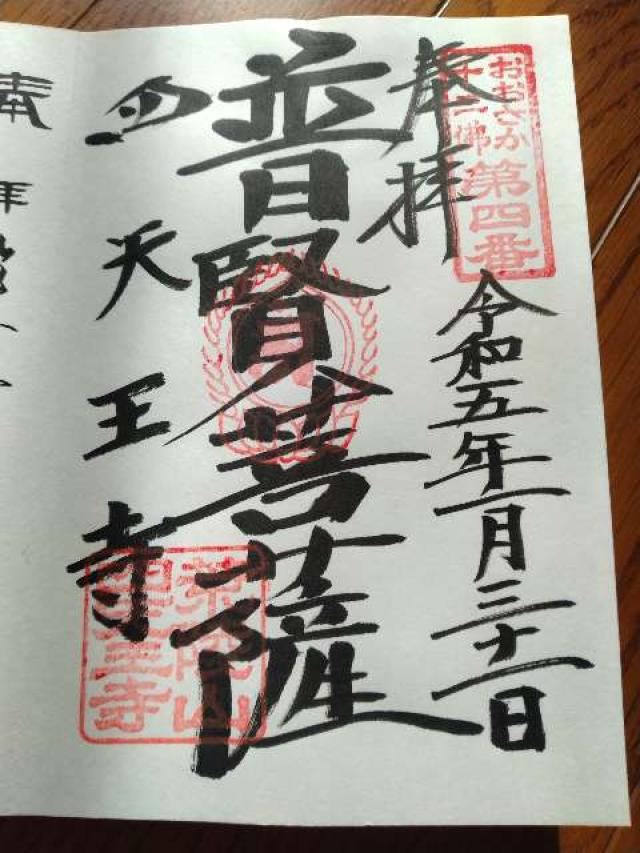 おおさか
十三佛
第四番
奉拝
令和五年一月三十一日
普賢菩薩
四天王寺
荒陵山
四天王寺
奉
拝